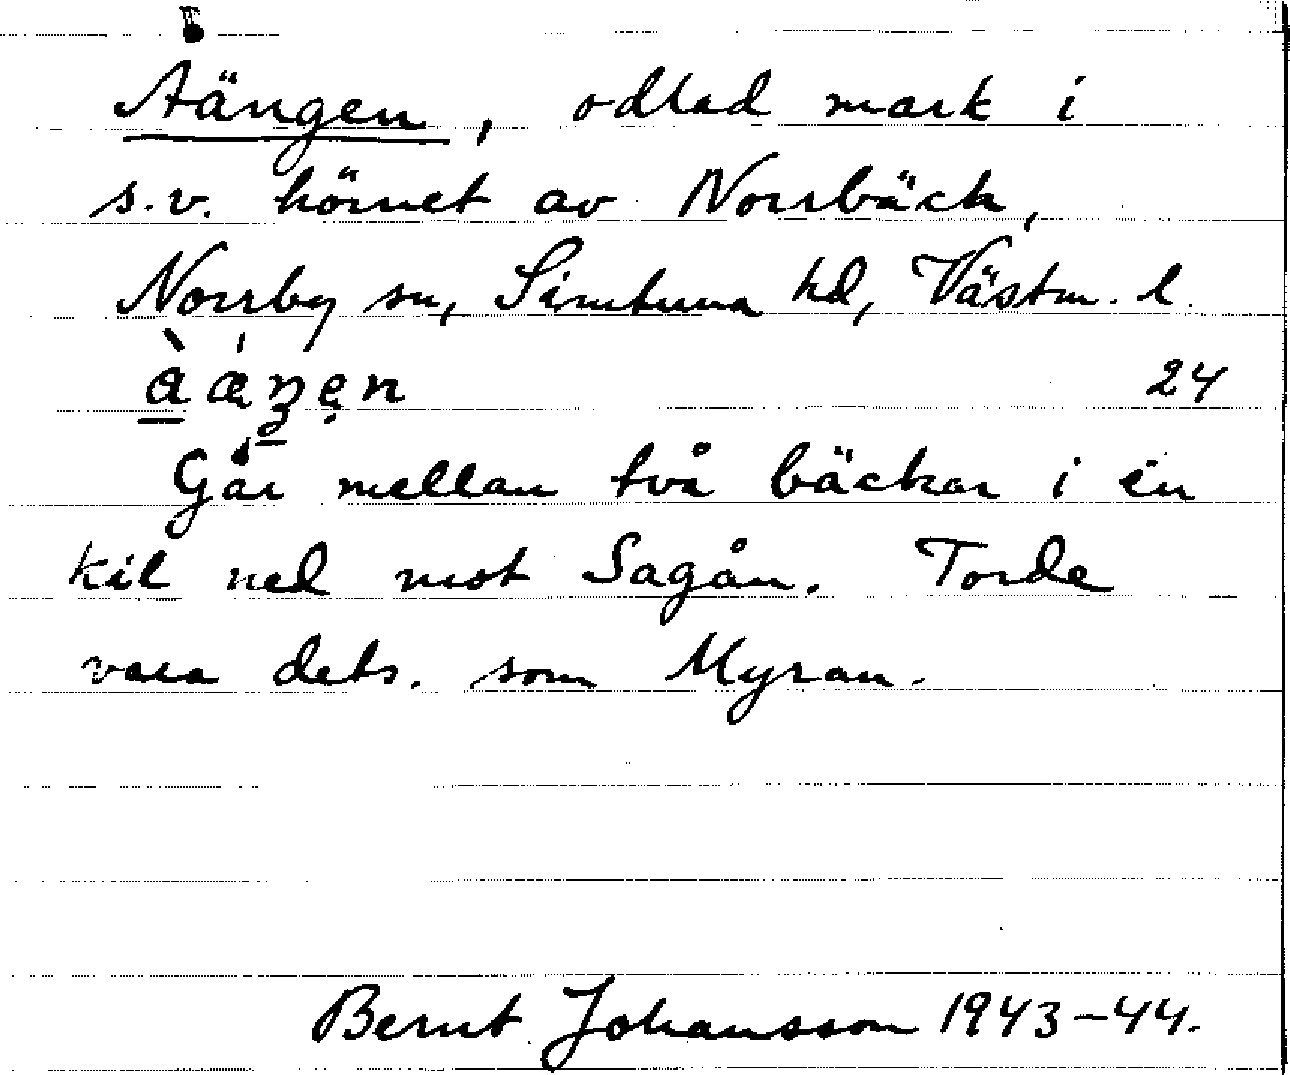 Aängen, odlad mark i
s.v. hörnet av Norrbäck,
Norrby sn, Simtuna hd, Västm. l.
24
Går mellan två bäckar i en
kil ned mot Sagån. Torde
vara dets. som Myran.
Bernt Johansson 1943-44.